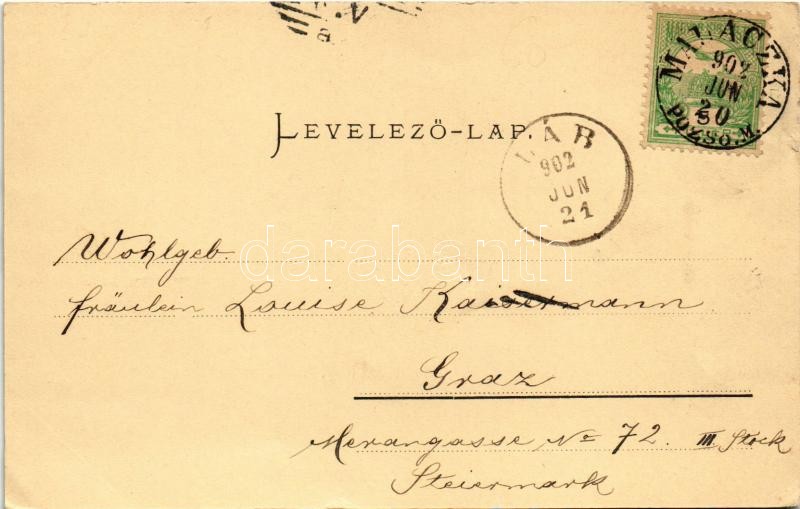 MALACZKA
902
JUN
20
POZSO.M.
LEVELEZŐ-LAP.
GÁB
902
JUN
21
Wohlgeb.
fräulein Louise Kaisermann
Graz
Merangasse No 72. III. Stock
Steiermark
darabanth